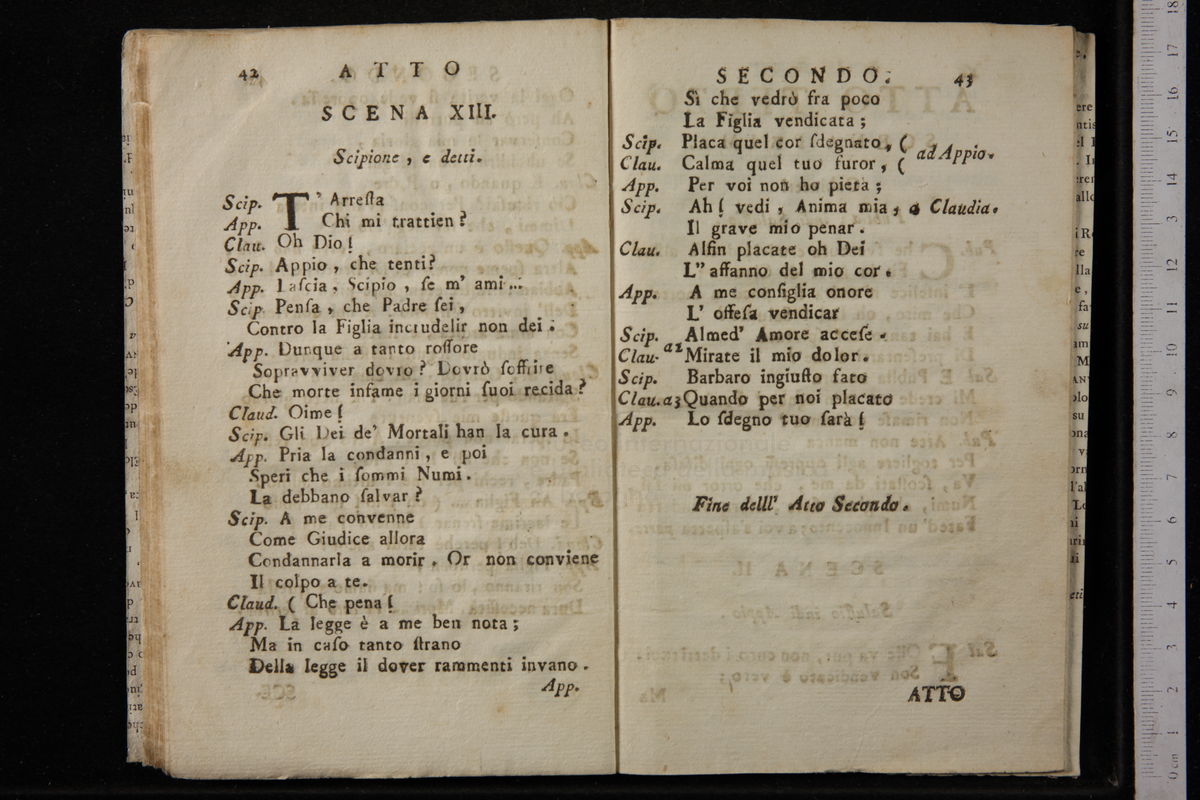 42 ATTO
SCENA XIII.
Scipione, e detti.
Scip. T'Arreſta
App. Chi mi trattien?
Clau. Oh Dio!
Scip. Appio, che tenti?
App. Laſcia, Scipio, ſe m' ami...
Scip. Penſa, che Padre ſei,
Contro la Figlia incrudelir non dei.
App. Dunque a tanto roſſore
Sopravviver dovrò? Dovrò ſoffrire
Che morte infame i giorni ſuoi recida?
Claud. Oime!
Scip. Gli Dei de' Mortali han la cura.
App. Pria la condanni, e poi
Speri che i ſommi Numi.
La debbano ſalvar?
Scip. A me convenne
Come Giudice allora
Condannarla a morir. Or non conviene
Il colpo a te.
Claud. ( Che pena!
App. La legge è a me ben nota;
Ma in caſo tanto ſtrano
Della legge il dover rammenti invano.
App.
SECONDO. 43
Sì che vedrò fra poco
La Figlia vendicata;
Scip. Placa quel cor ſdegnato, (
Clau. Calma quel tuo furor, ( ad Appio.
App. Per voi non ho pietà;
Scip. Ah! vedi, Anima mia, a Claudia.
Il grave mio penar.
Clau. Alfin placate oh Dei
L'' affanno del mio cor.
App. A me conſiglia onore
L' offeſa vendicar
Scip. Almed' Amore acceſe.
Clau. a2 Mirate il mio dolor.
Scip. Barbaro ingiuſto fato
Clau. a3 Quando per noi placato
App. Lo ſdegno tuo ſarà!
Fine delll' Atto Secondo.
ATTO